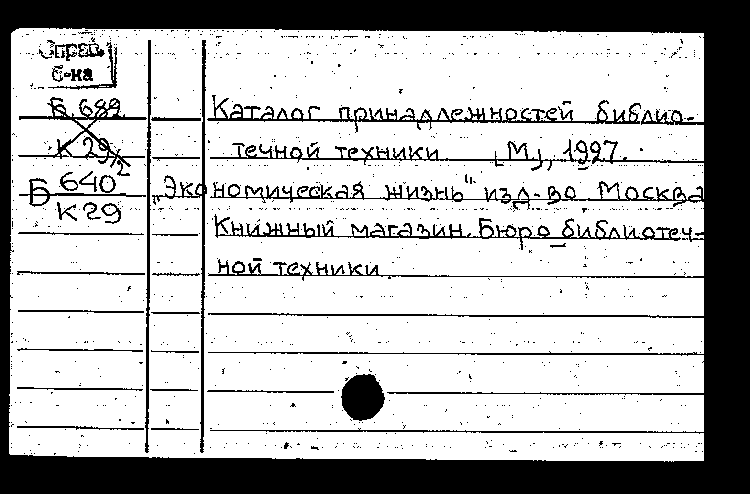 Справ.
б-ка
Б 689
К 29/2
Б 640
К 29
Каталог принадлежностей библио-
течной техники [М], 1927.
„Экономическая жизнь" изд-во Москва
Книжный магазин. Бюро библиотеч-
ной техники